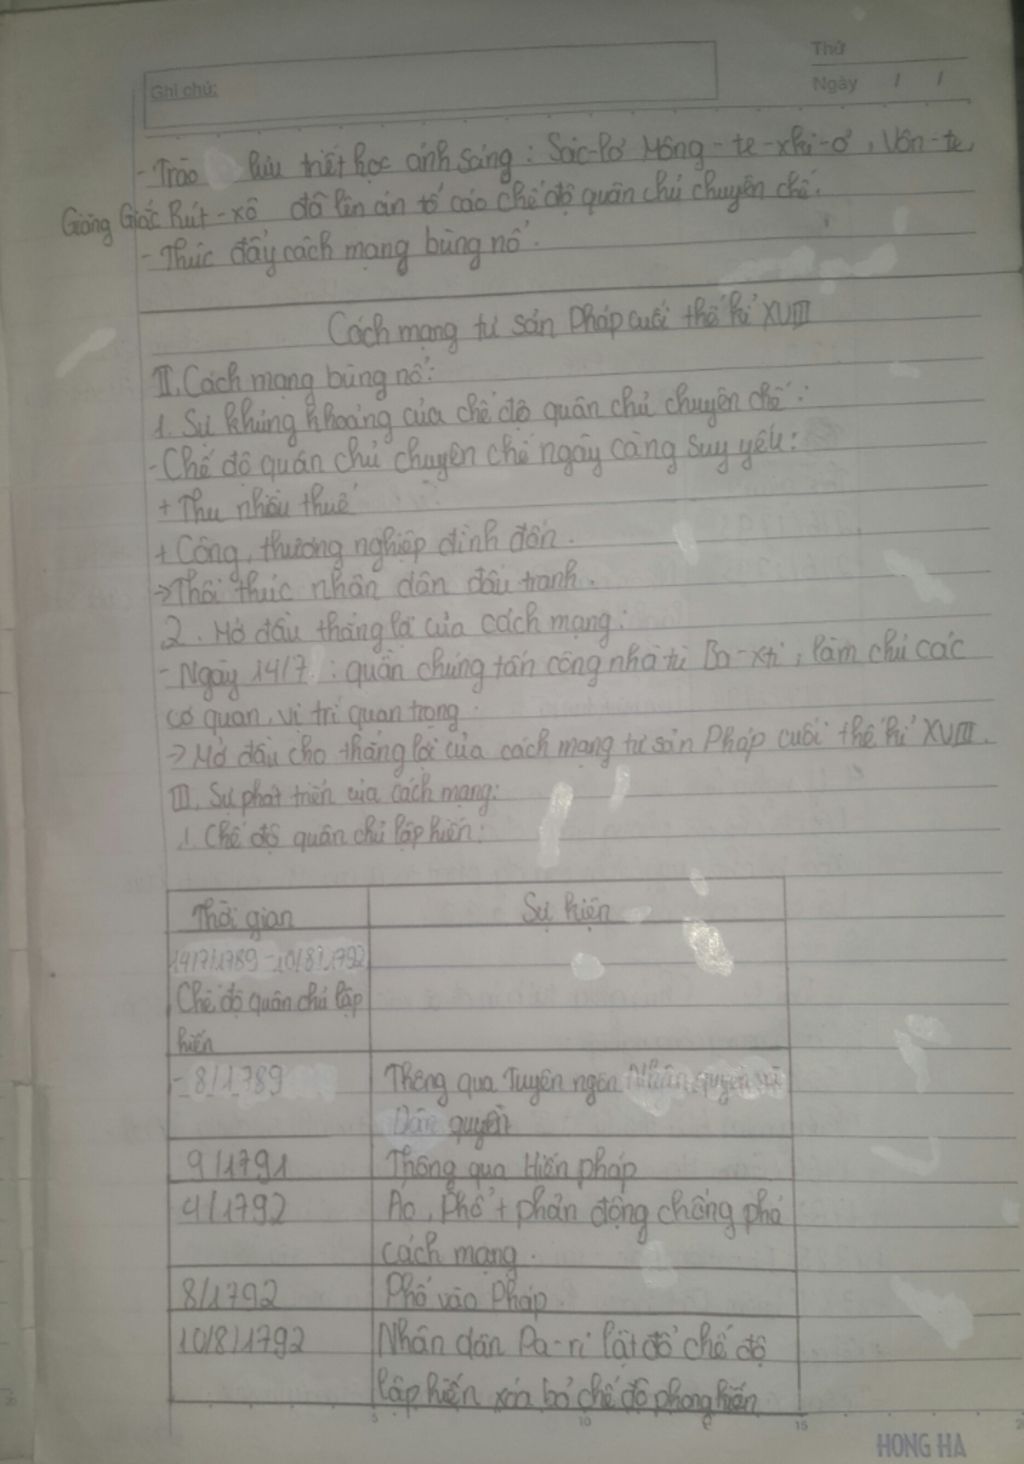 Thứ
Ghi chú:
Ngày / /
- Trào lưu triết học ánh sáng: Sác-lơ Mông-te-xki-ơ, Vôn-te,
Giăng Giắc Rút-xô đã lên án tố cáo chế độ quân chủ chuyên chế.
- Thúc đẩy cách mạng bùng nổ.
Cách mạng tư sản Pháp cuối thế kỉ XVIII
II. Cách mạng bùng nổ:
1. Sự khủng khoảng của chế độ quân chủ chuyên chế:
- Chế độ quân chủ chuyên chế ngày càng suy yếu:
+ Thu nhiều thuế
+ Công, thương nghiệp đình đốn.
→ Thôi thúc nhân dân đấu tranh.
2. Mở đầu thắng lợi của cách mạng:
- Ngày 14/7: quần chúng tấn công nhà tù Ba-xti, làm chủ các
cơ quan, vị trí quan trọng.
→ Mở đầu cho thắng lợi của cách mạng tư sản Pháp cuối thế kỉ XVIII.
III. Sự phát triển của cách mạng:
1. Chế độ quân chủ lập hiến:
Thời gian Sự kiện
14/7/1789 - 10/8/1792
Chế độ quân chủ lập
hiến
- 8/1789 Thông qua Tuyên ngôn Nhân quyền và
Dân quyền
9/1791 Thông qua Hiến pháp
4/1792 Áo, Phổ + phản động chống phá
cách mạng.
8/1792 Phổ vào Pháp.
10/8/1792 Nhân dân Pa-ri lật đổ chế độ
lập hiến xóa bỏ chế độ phong kiến
5 10 15
HONG HA